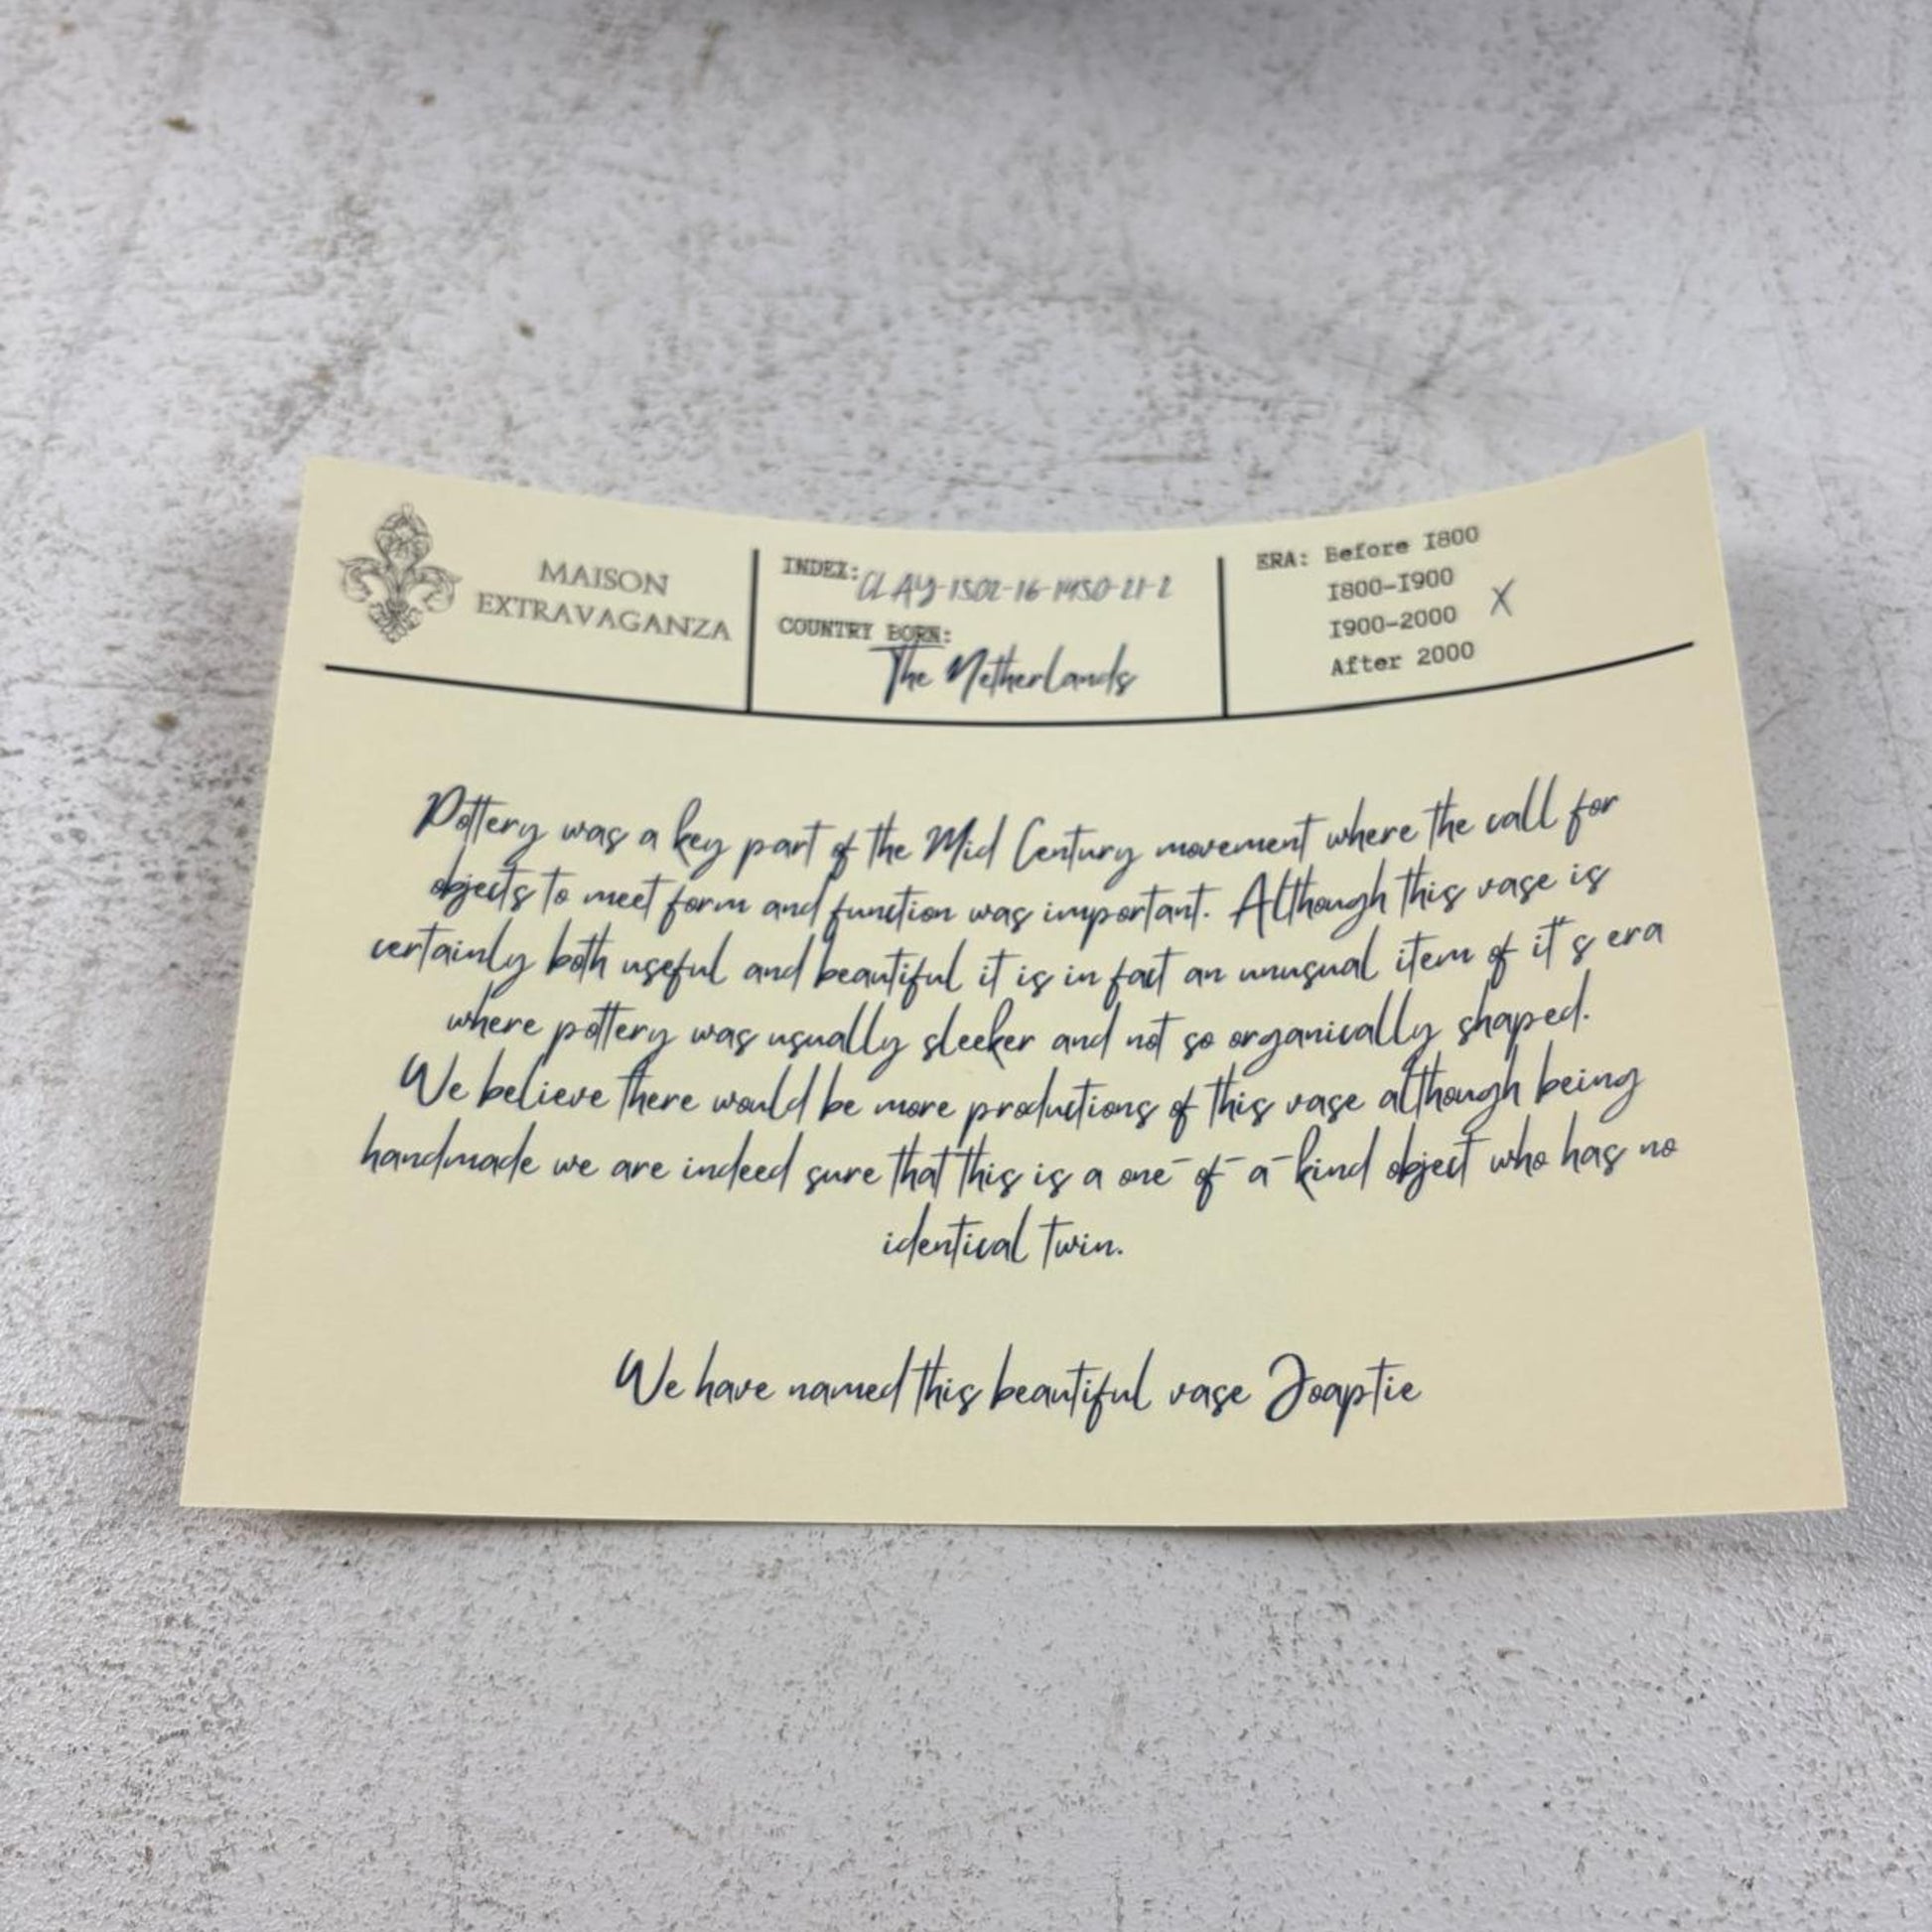 MAISON
EXTRAVAGANZA
INDEX:
COUNTRY BORN:
The Netherlands
ERA: Before 1800
1800-1900
1900-2000 X
After 2000
Pottery was a key part of the Mid Century movement where the call for
objects to meet form and function was important. Although this vase is
certainly both useful and beautiful it is in fact an unusual item of it's era
where pottery was usually sleeker and not so organically shaped.
We believe there would be more productions of this vase although being
handmade we are indeed sure that this is a one-of-a-kind object who has no
identical twin.
We have named this beautiful vase Joaptie